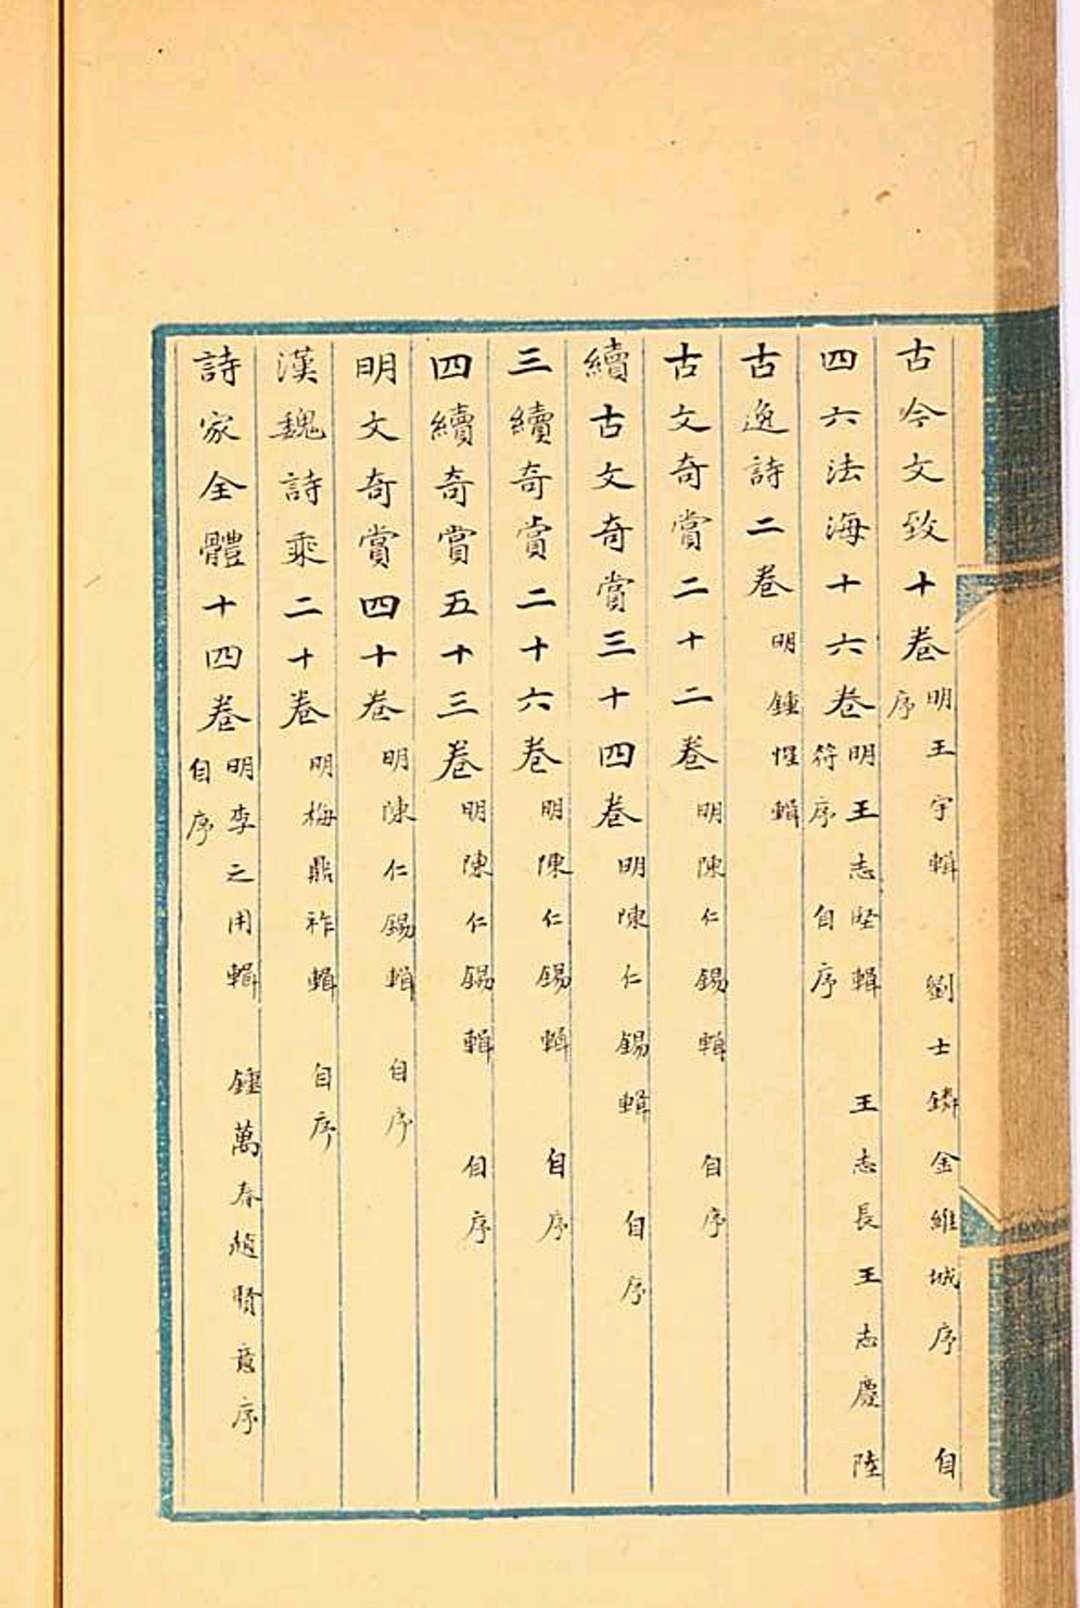 古今文致十卷明王宇輯　劉士鏻金維城序　自序
四六法海十六卷明王志堅輯　王志長王志慶陸符序　自序
古逸詩二卷明鍾惺輯
古文奇賞二十二卷明陳仁錫輯　自序
續古文奇賞三十四卷明陳仁錫輯　自序
三續奇賞二十六卷明陳仁錫輯　自序
四續奇賞五十三卷明陳仁錫輯　自序
明文奇賞四十卷明陳仁錫輯　自序
漢魏詩乘二十卷明梅鼎祚輯　自序
詩家全體十四卷明李之用輯　鍾萬春趙賢意序　自序